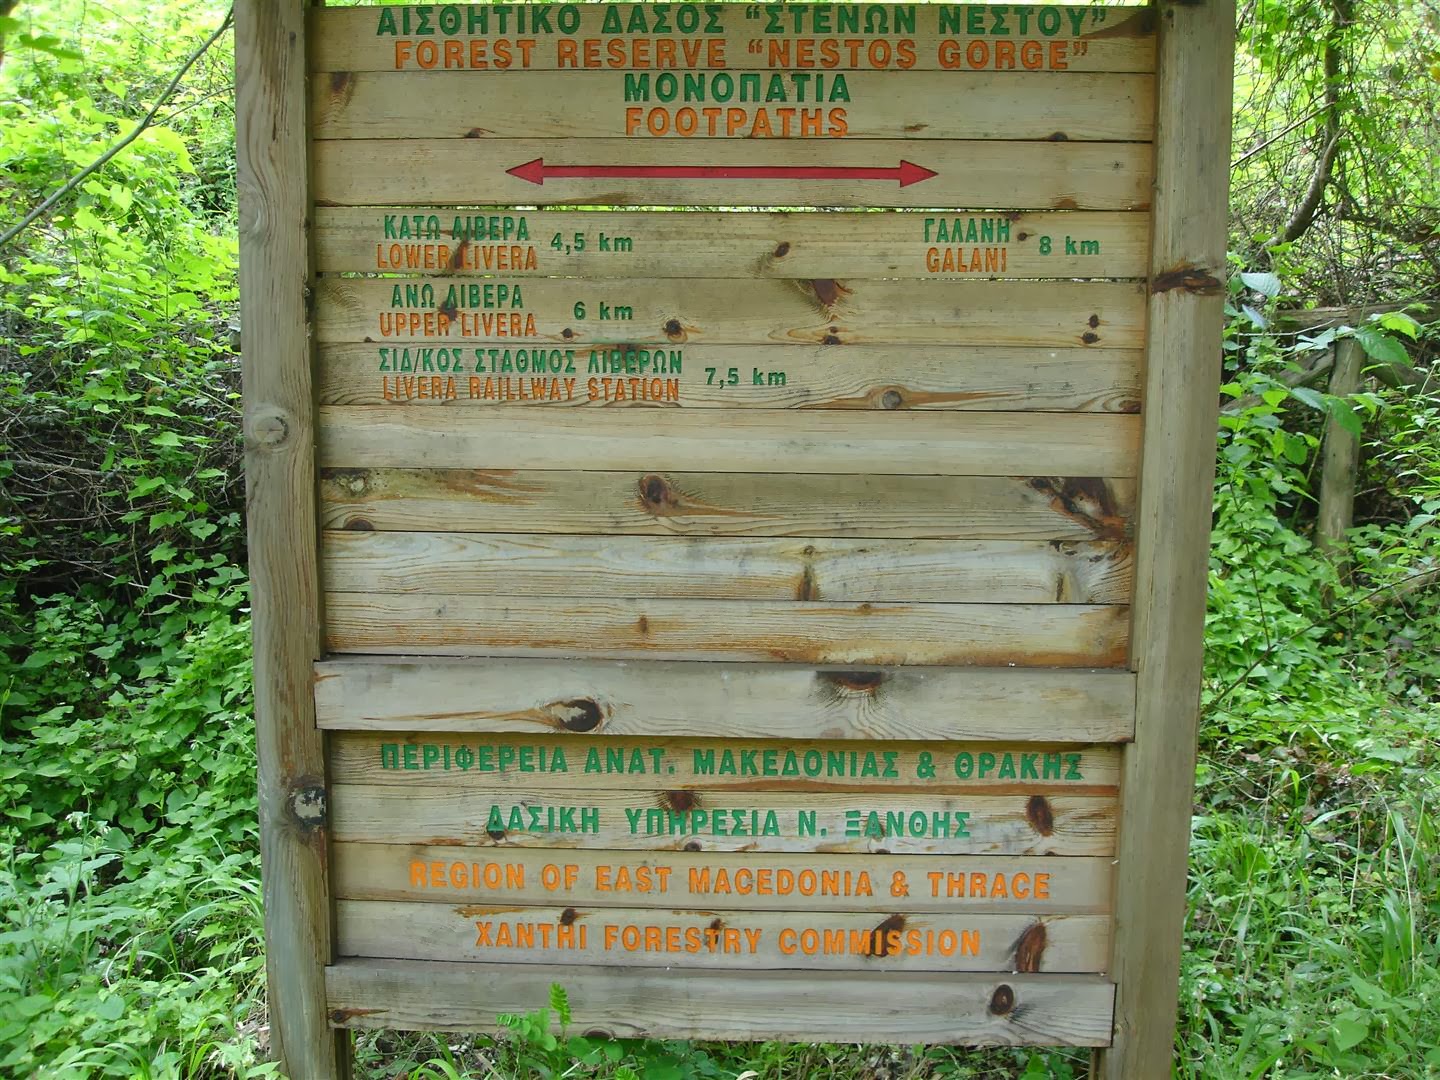 ΑΙΣΘΗΤΙΚΟ ΔΑΣΟΣ “ΣΤΕΝΩΝ ΝΕΣΤΟΥ”
FOREST RESERVE “NESTOS GORGE”
ΜΟΝΟΠΑΤΙΑ
FOOTPATHS
ΚΑΤΩ ΛΙΒΕΡΑ
LOWER LIVERA
4,5 km
ΓΑΛΑΝΗ
GALANI
8 km
ΑΝΩ ΛΙΒΕΡΑ
UPPER LIVERA
6 km
ΣΙΔ/ΚΟΣ ΣΤΑΘΜΟΣ ΛΙΒΕΡΩΝ
LIVERA RAILLWAY STATION
7,5 km
ΠΕΡΙΦΕΡΕΙΑ ΑΝΑΤ. ΜΑΚΕΔΟΝΙΑΣ & ΘΡΑΚΗΣ
ΔΑΣΙΚΗ ΥΠΗΡΕΣΙΑ Ν. ΞΑΝΘΗΣ
REGION OF EAST MACEDONIA & THRACE
XANTHI FORESTRY COMMISSION